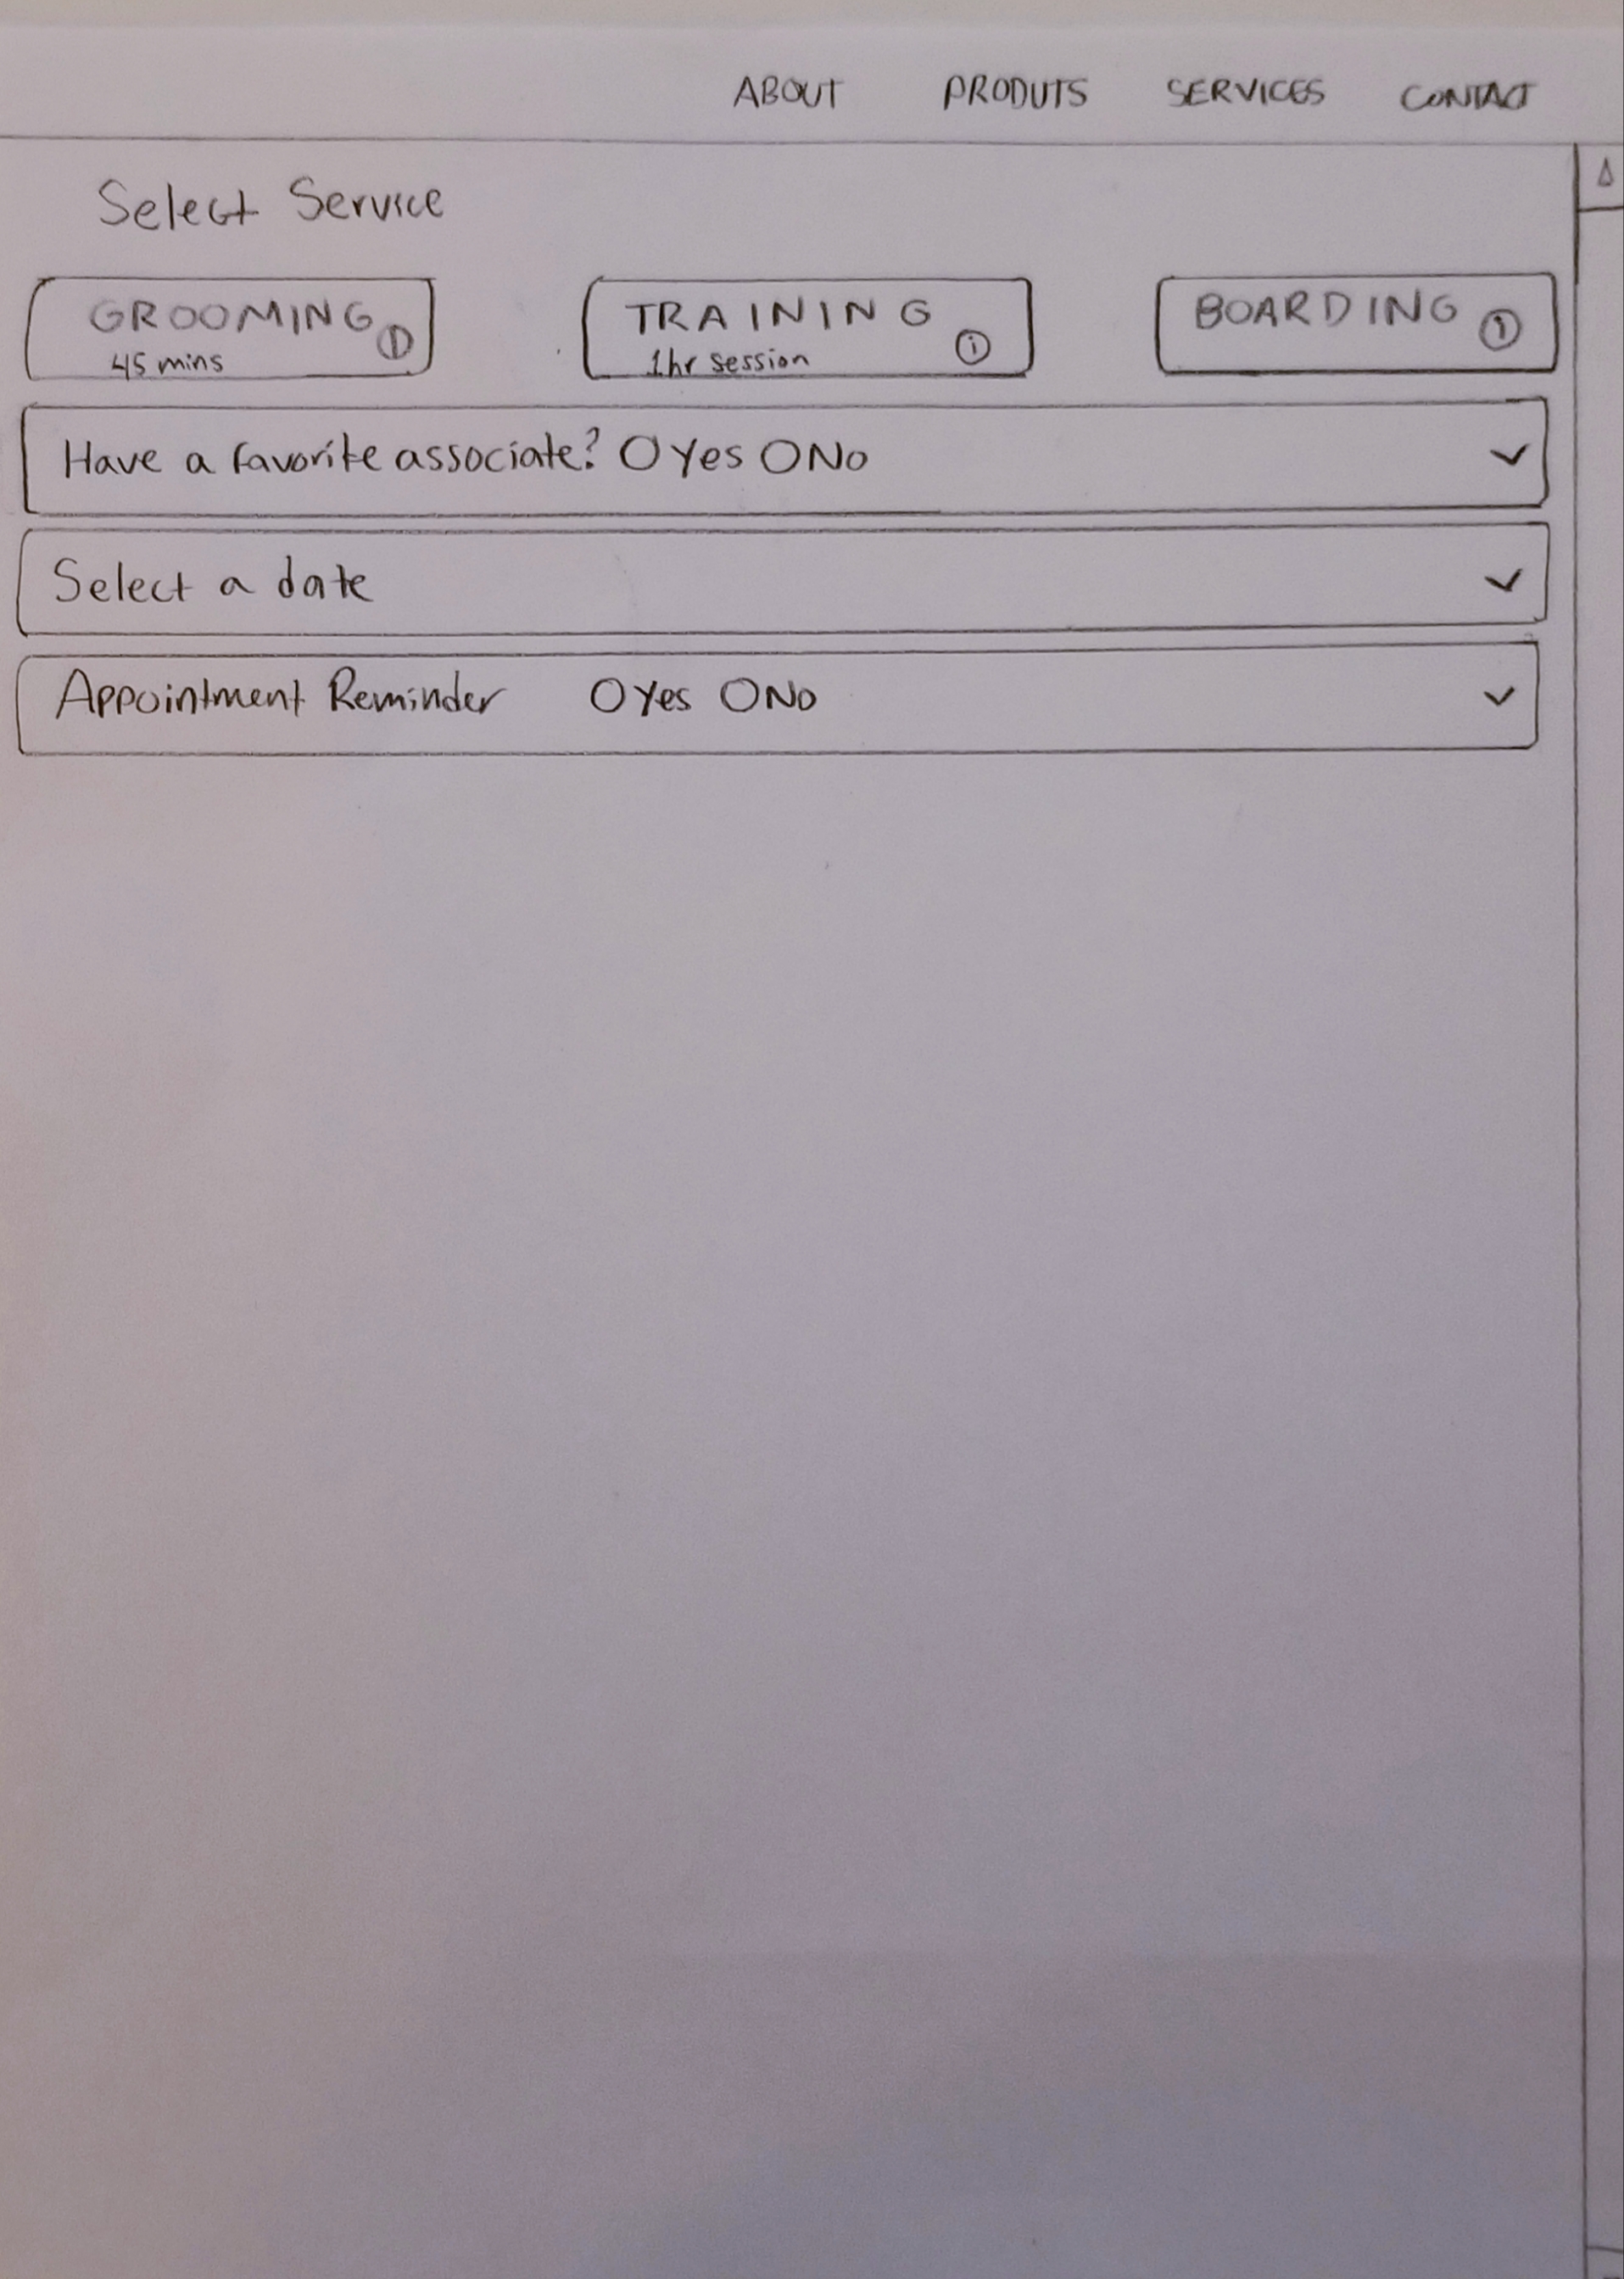 ABOUT PRODUTS SERVICES CONTACT
Select Service
GROOMING i
45 mins
TRAINING i
1hr session
BOARDING i
Have a favorite associate? O Yes O No
Select a date
Appointment Reminder O Yes O No